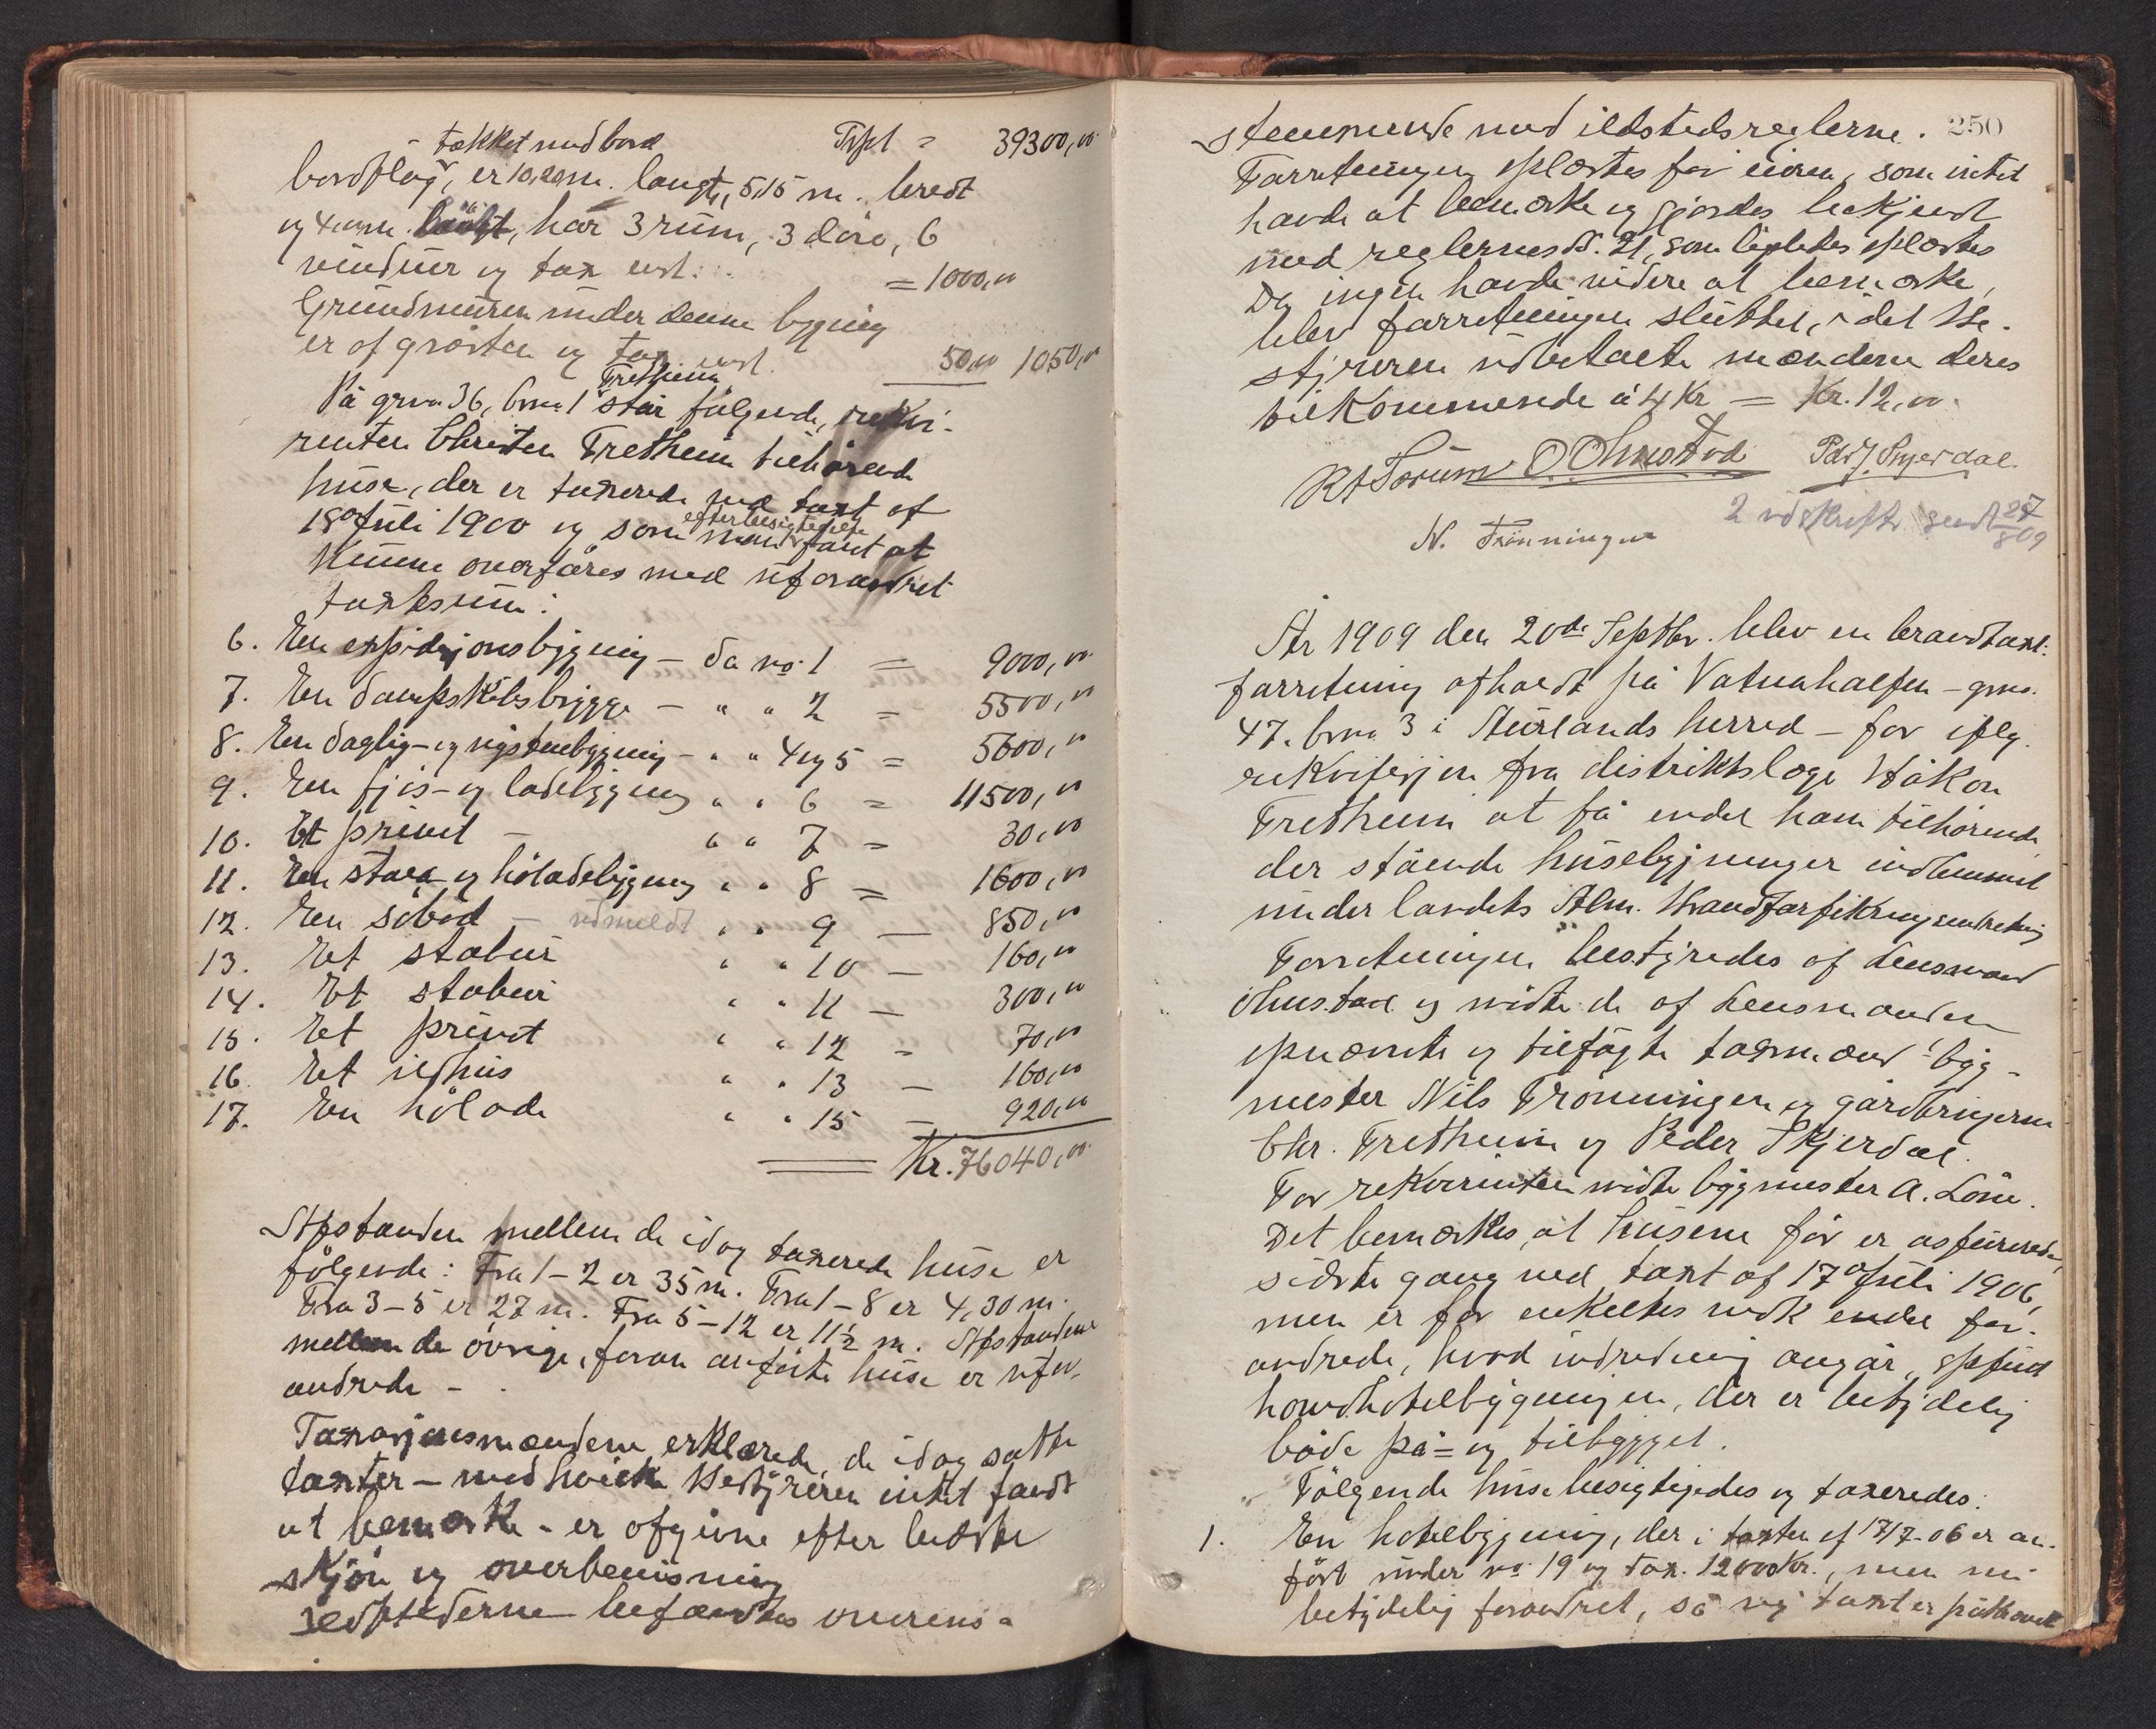 takket med bord Trspt = 39300,00
bordflag, er 10,20 m. langt, 5,15 m. bredt
og 4 m. höit, har 3 rum, 3 döre, 6
vinduer og tax. verd. = 1000,00
Grundmuren under denne bygning
er af gråsten og tax. verd. 50,00 1050,00
På grno 36, brno 1 Fretheim står følgende, rekvi-
renten Christen Fretheim tilhørende
huse, der er taxerede ved taxt af
18de Juli 1900 og som man efter besigtigelse fant at
kunne overføres med uforandret
taxtsum:
6. En expidisjonsbygning – da no. 1 = 9000,00
7. En dampskibsbrygge – " " 2 = 5500,00
8. En daglig- og nystuebygning – " " 4 og 5 = 5600,00
9. En fjøs- og ladebygning " " 6 = 11500,00
10. Et privet – " " 7 = 30,00
11. En stald og høladebygning " " 8 = 1600,00
12. En söbod – udmeldt " " 9 – 850,00
13. Et stabur " " 10 – 160,00
14. Et stabur " " 11 – 300,00
15. Et privet " " 12 – 70,00
16. Et ildhus " " 13 – 160,00
17. En hölade " " 15 – 920,00
Kr. 76040,00
Afstanden mellem de idag taxerede huse er
følgende: Fra 1–2 er 35 m. Fra 1–8 er 4,30 m.
Fra 3–5 er 27 m. Fra 5–12 er 11½ m. Afstandene
mellem de övrige, foran anførte huse er ufor-
andrede –
Taxasjonsmændene erklærede, de idag satte
taxter – med hvilke Bestyreren intet fandt
at bemærke – er afgivne efter bedste
skjön og overbevisning
Ildstederne befandtes overens-
stemmende med ildstedsreglerne. 250
Forretningen oplæstes for eieren, som intet
havde at bemærke og gjordes bekjendt
med reglernes §. 21, som ligeledes oplæstes
Da ingen havde videre at bemærke,
blev forretningen sluttet, idet Be-
styreren udbetalte mændene deres
tilkommende à 4 Kr = Kr. 12,00.
R A Sorum O Ohnstad Peder J Skjerdal
N. Trönningen
2 udskrifter sendt 28/8 09
År 1909 den 20de Septbr. blev en brandtaxt-
forretning afholdt på Vatnahalsen – grno.
47. brno 3 i Aurlands herred – for iflg.
rekvisisjon fra distriktslæge Håkon
Fretheim at få endel ham tilhørende
der stående husebygninger indlemmet
under landets Alm. Brandforsikringsindretning
Forretningen bestyredes af Lensmand
Ohnstad og mødte de af Lensmanden
opnævnte og tilsagte taxmænd: byg-
mester Nils Trönningen og gårdbrugerne
Chr. Fretheim og Peder Skjerdal.
For rekvirenten mødte bygmester A. Löne.
Det bemærkes, at husene før er assurerede,
sidste gang ved taxt af 17de Juli 1906,
men er for enkeltes vedk endel for-
andrede, hvad indredning angår, påfund
hovedhotelbygningen, der er betydelig
både på= og tilbygget.
Følgende huse besigtigedes og taxeredes:
1. En hotelbygning, der i taxten af 17/7-06 er an-
fört under no 19 og tax. 12000 Kr., men nu
betydelig forandret, så ny taxt er påkrævet